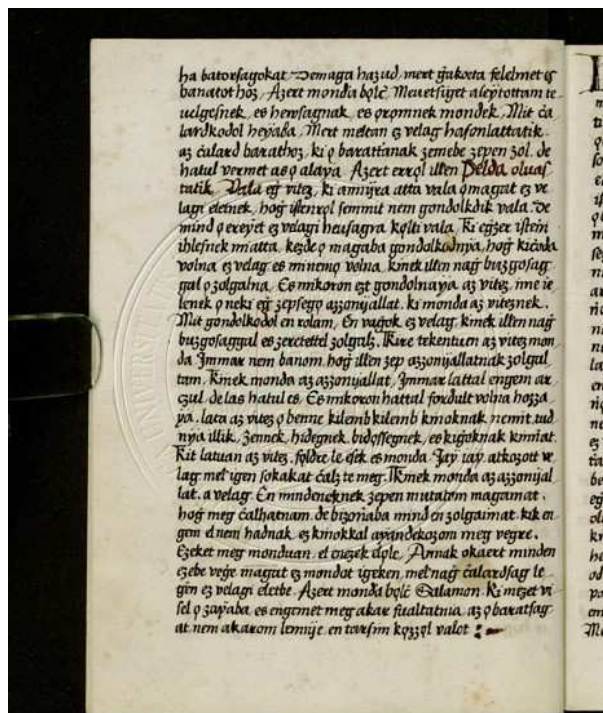 ha batorsagokat Demaga hazud, mert gakorta felelmet es
banatot hoz, Azert monda bolc. Meuetseget aleytottam te
uelgesnek, es hewsagnak, es oromnek mondek, Mit ca
landkodol heyaba, Mert meltan ez velag hasonlattatik
az calard barathoz, ki o barattanak zemebe zepen zol, de
hatul vermet as o alaya Azert errol illen Pelda oluas
tatik, Vala eg vitez, ki annijra atta vala o magat ez ve
lagi eletnek, hog istenrol semmit nem gondolkodik vala, De
mind o ereyet ez velagi heusagra kolti vala, Ki egzer istein
ihlesnek miatta, kezde o magaba gondolkodnya, hog kicoda
volna ez velag es minemo volna, kinek illen nag buzgosag
gal o zolgalna, Es mikoron ezt gondolnaya, az vitez, ime ie
lenek o neki eg zepsego azzonijallat, ki monda az viteznek,
Mit gondolkodol en rolam, En vagok ez velag, kinek illen nag
buzgosaggal es zeretettel zolgalz, Kire tekentuen az vitez mon
da Immar nem banom, hog illen zep azzonijallatnak zolgal
tam, Kinek monda az azzonijallat, Immar lattal engem ar
czul, de las hatul es, Es mikoron hattal fordult volna hozza
ya, lata az vitez o benne kilemb kilemb kinoknak nemit, tud
nya illik, Zennek, hidegnek, bidossegnek, es kigoknak kinniat,
Kit latuan az vitez, foldre le esek es monda Jay iay, atkozott ve
lag mel igen sokakat calz te meg, Kinek monda az azzonijal
lat, a velag, En mindeneknek zepen mutatom magamat,
hog meg calhatnam, de bizonaba mind en zolgaimat, kik en
gem el nem hadnak, ez kinokkal ayandekozom meg vegre,
Ezeket meg monduan, el enezek elole, Annak okaert minden
ezebe vege magat ez mondot igeken, mel nag calardsag le
gen ez velagi eletbe, Azert monda bolc Salamon, Ki mezet vi
sel o zayaba es engemet meg akar fitaltatnia, az o baratsag
at nem akarom lennije, en tarsim kozzol valot